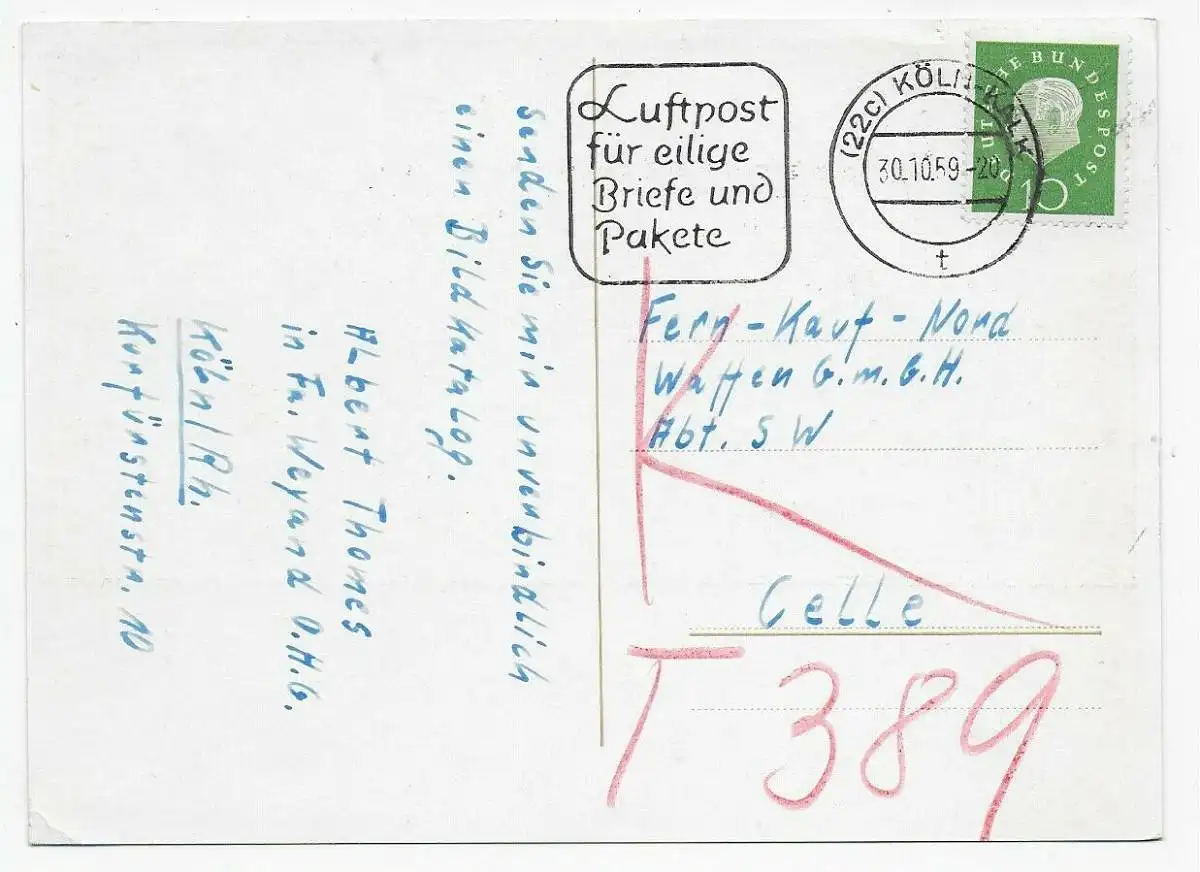 Luftpost
für eilige
Briefe und
Pakete
(22c) KÖLN-KALK
30.10.59-20
t
DEUTSCHE BUNDESPOST
10
Fern-Kauf-Nord
Waffen G.m.G.H.
Abt. SW
Celle
K
T 389
Senden Sie mir unverbindlich
einen Bildkatalog.
Albert Thomes
in Fa. Weyand O.H.G.
Köln/Rh.
Kurfürstenstr. 10